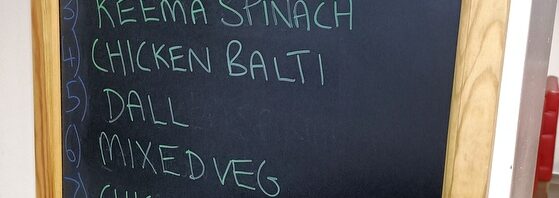 3) KEEMA SPINACH
4) CHICKEN BALTI
5) DALL
6) MIXED VEG
7)